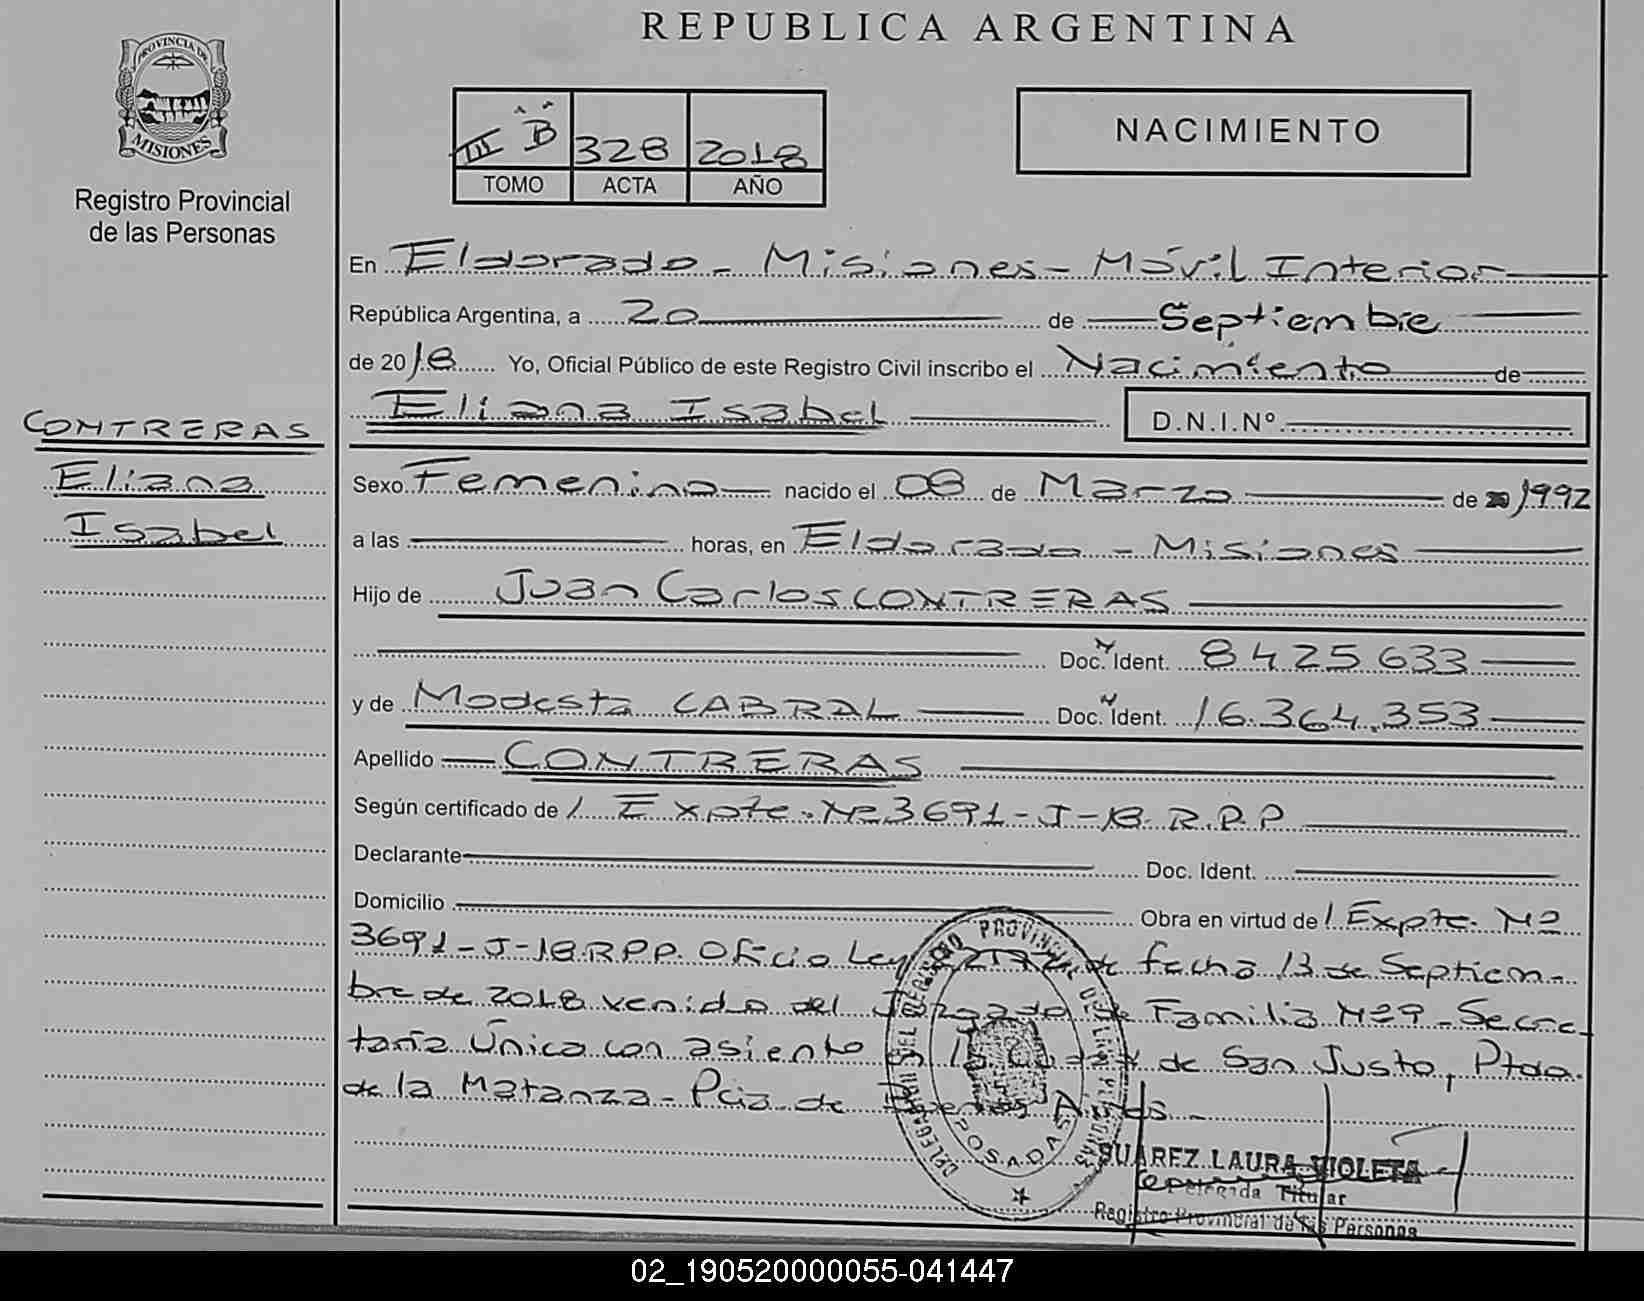 REPUBLICA ARGENTINA
PROVINCIA DE
MISIONES
Registro Provincial
de las Personas
III B 328 2018
TOMO ACTA AÑO
NACIMIENTO
En Eldorado - Misiones - Móvil Interior
República Argentina, a 20 de Septiembre
de 2018 Yo, Oficial Público de este Registro Civil inscribo el Nacimiento de
Eliana Isabel D.N.I.Nº
CONTRERAS
Eliana
Isabel
Sexo Femenino nacido el 08 de Marzo de 1992
a las horas, en Eldorado - Misiones
Hijo de Juan Carlos CONTRERAS
Doc. Ident. 8425.633
y de Modesta CABRAL Doc. Ident. 16.364.353
Apellido CONTRERAS
Según certificado de / Expte. Nº 3691-J-18-R.P.P
Declarante Doc. Ident.
Domicilio Obra en virtud de / Expte. Nº
3691-J-18.R.P.P. Oficio Ley de fecha 13 de Septiem-
bre de 2018 venido del Juzgado de Familia Nº 9 - Secre-
taría Única con asiento en la Ciudad de San Justo, Ptdo.
de la Matanza - Pcia. de Buenos Aires -
POSADAS
SUAREZ LAURA VIOLETA
Delegada Titular
Registro Provincial de las Personas
02_190520000055-041447